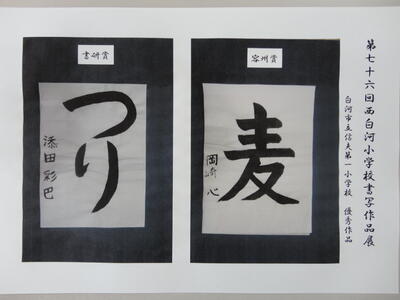 第七十六回西白河小学校書写作品展
白河市立信夫第一小学校 優秀作品
容州賞
麦
岡崎 心
書研賞
つり
添田彩巴